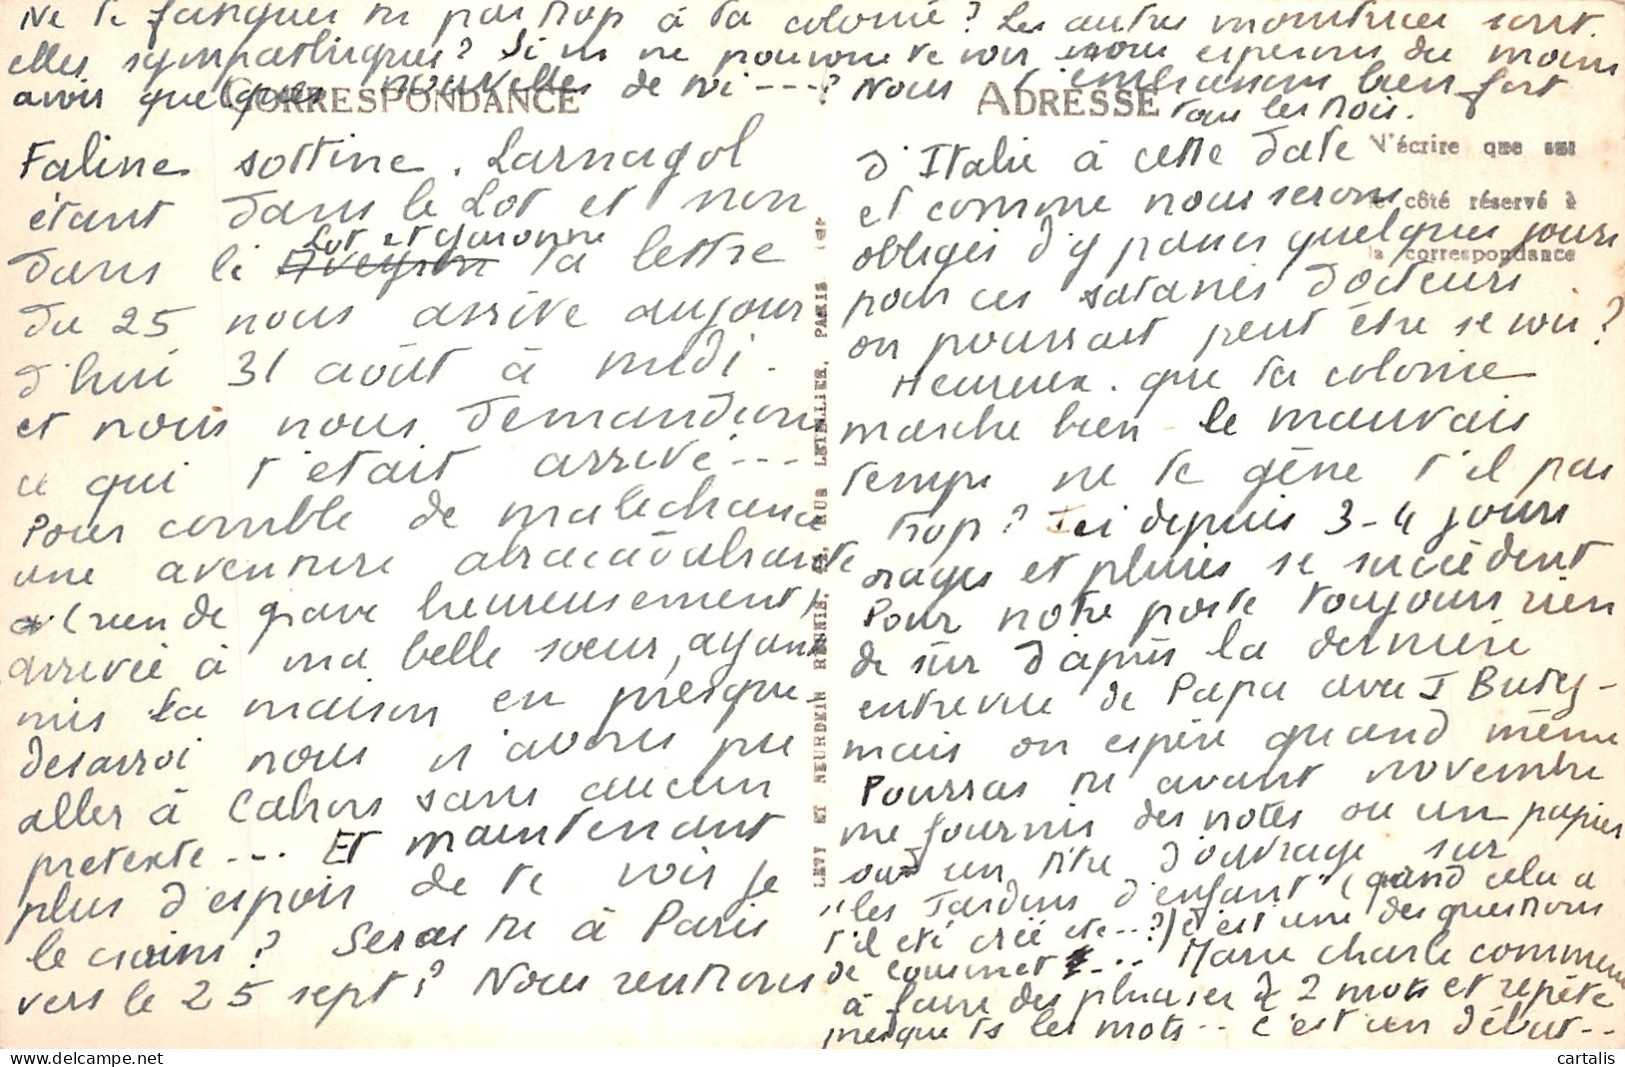 Ne te fatigues tu pas trop à ta colonie? Les autres monitrices sont.
elles sympathiques? Si ns ne pouvons te voir nous espérons du moins
avoir quelques nouvelles de toi ---? Nous t'embrassons bien fort
tous les trois.
CORRESPONDANCE
Faline sottine. Larnagol
étant dans le Lot et non
Lot et Garonne
dans le Aveyron ta lettre
du 25 nous arrive aujour
d'hui 31 août à midi.
et nous nous demandions
ce qui t'était arrivé ---
Pour comble de malechance
une aventure abracadabrante
(rien de grave heureusement)
arrivée à ma belle soeur, ayant
mis la maison en presque-
désarroi nous n'avons pu
aller à Cahors sans aucun
pretexte --- Et maintenant
plus d'espoir de te voir je
le crains? Seras tu à Paris
vers le 25 sept? Nous rentrons
LEVY ET NEURDEIN REUNIS, RUE LETELLIER, PARIS
ADRESSE
N'écrire que sur
le côté réservé à
la correspondance
d'Italie à cette date
et comme nous serons
obligés d'y passer quelques jours
pour ces satanés docteurs
on pourrait peut être se voir?
Heureux. que ta colonie
marche bien le mauvais
temps ne te gêne t'il pas
trop? Ici depuis 3-4 jours
orages et pluies se succèdent
Pour notre poste toujours rien
de sûr d'après la dernière
entrevue de Papa avec
mais on espère quand même
Pourras tu avant novembre
me fournir des notes ou un papier
ou un titre d'ouvrage sur
"les Jardins d'enfant" (quand cela a
t'il été créé etc--?) c'est une des questions
de Marie charle commence
à faire des phrases de 2 mots et repète
presque ts les mots -- c'est un début --
cartalis